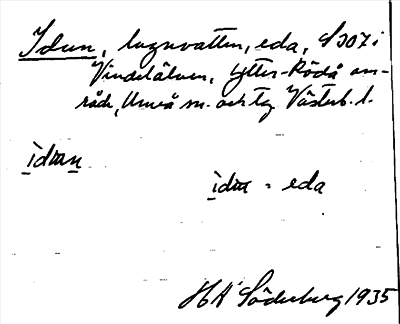 Idun, lugnvatten, eda, S307 i
Vindelälven, Ytter-Rödå om-
råde, Umeå sn. och tg Västerb. l.
idun
idu = eda
HA Söderberg 1935